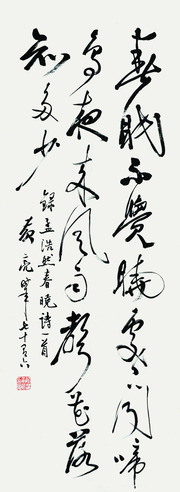 春眠不覺曉處處聞啼
鳥夜来風雨聲花落
知多少
錄孟浩然春曉詩一首